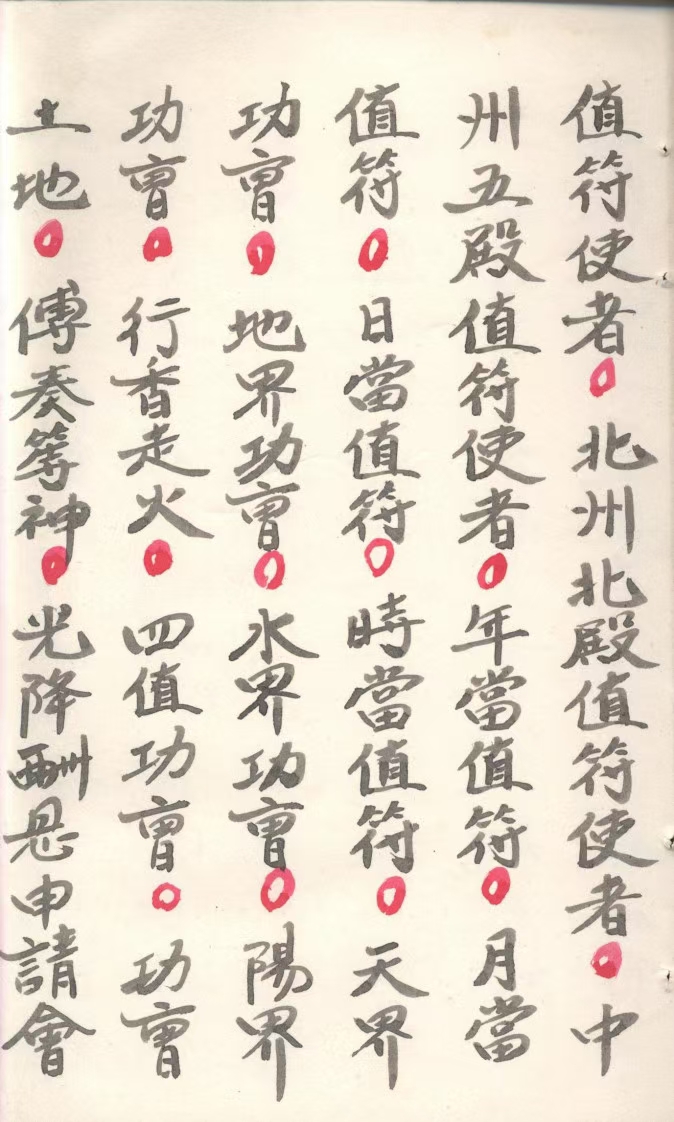 值符使者○北州北殿值符使者○中
州五殿值符使者○年當值符○月當
值符○日當值符○時當值符○天界
功曹○地界功曹○水界功曹○陽界
功曹○行香走火○四值功曹○功曹
土地○傅奏等神○光降酬恩申請會